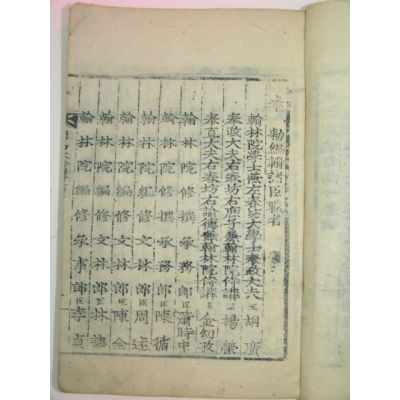 勅編
翰林院學士兼左春坊大學士奉政大夫臣胡廣
奉政大夫右春坊右庶子兼翰林院侍講臣楊榮
奉直大夫右春坊右諭德兼翰林院侍講臣金幼孜
翰林院修撰承務郎臣蕭時中
翰林院修撰承務郎臣陳循
翰林院編修文林郎臣周述
翰林院編修文林郎臣陳全
翰林院編修文林郎臣林誌
翰林院編修承事郎臣李貞